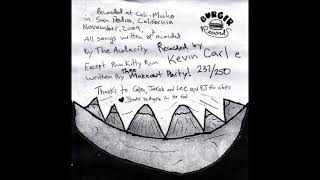 Recorded at Cali-Mucho
in San Pedro, California
November, 2009.
All songs written & recorded
By The Audacity
Recorded by
Kevin Carle
Except Run Kitty Run
written By Thee Makeout Party!
237/250
Thanks to Jakob and Lee and for
for the
BURGER
Records